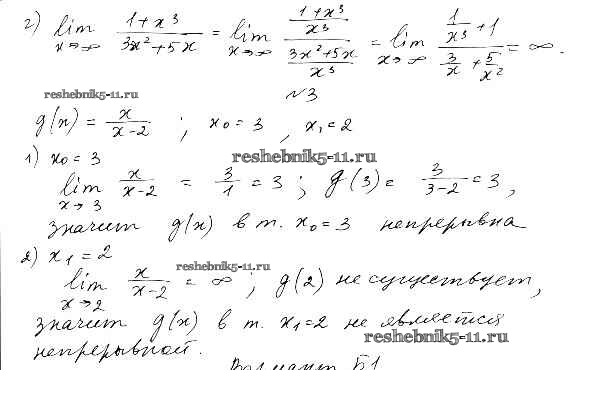 2) lim x→∞ (1+x³)/(3x²+5x) = lim x→∞ ((1+x³)/x³)/((3x²+5x)/x³) = lim x→∞ (1/x³+1)/(3/x+5/x²) = ∞.
reshebnik5-11.ru
№3
g(x) = x/(x-2) ; x₀=3 , x₁=2
1) x₀=3
reshebnik5-11.ru
lim x→3 x/(x-2) = 3/1 = 3 ; g(3) = 3/(3-2) = 3,
значит g(x) в т. x₀=3 непрерывна
2) x₁=2
reshebnik5-11.ru
lim x→2 x/(x-2) = ∞ ; g(2) не существует,
значит g(x) в т. x₁=2 не является
reshebnik5-11.ru
непрерывной.
Вариант Б1